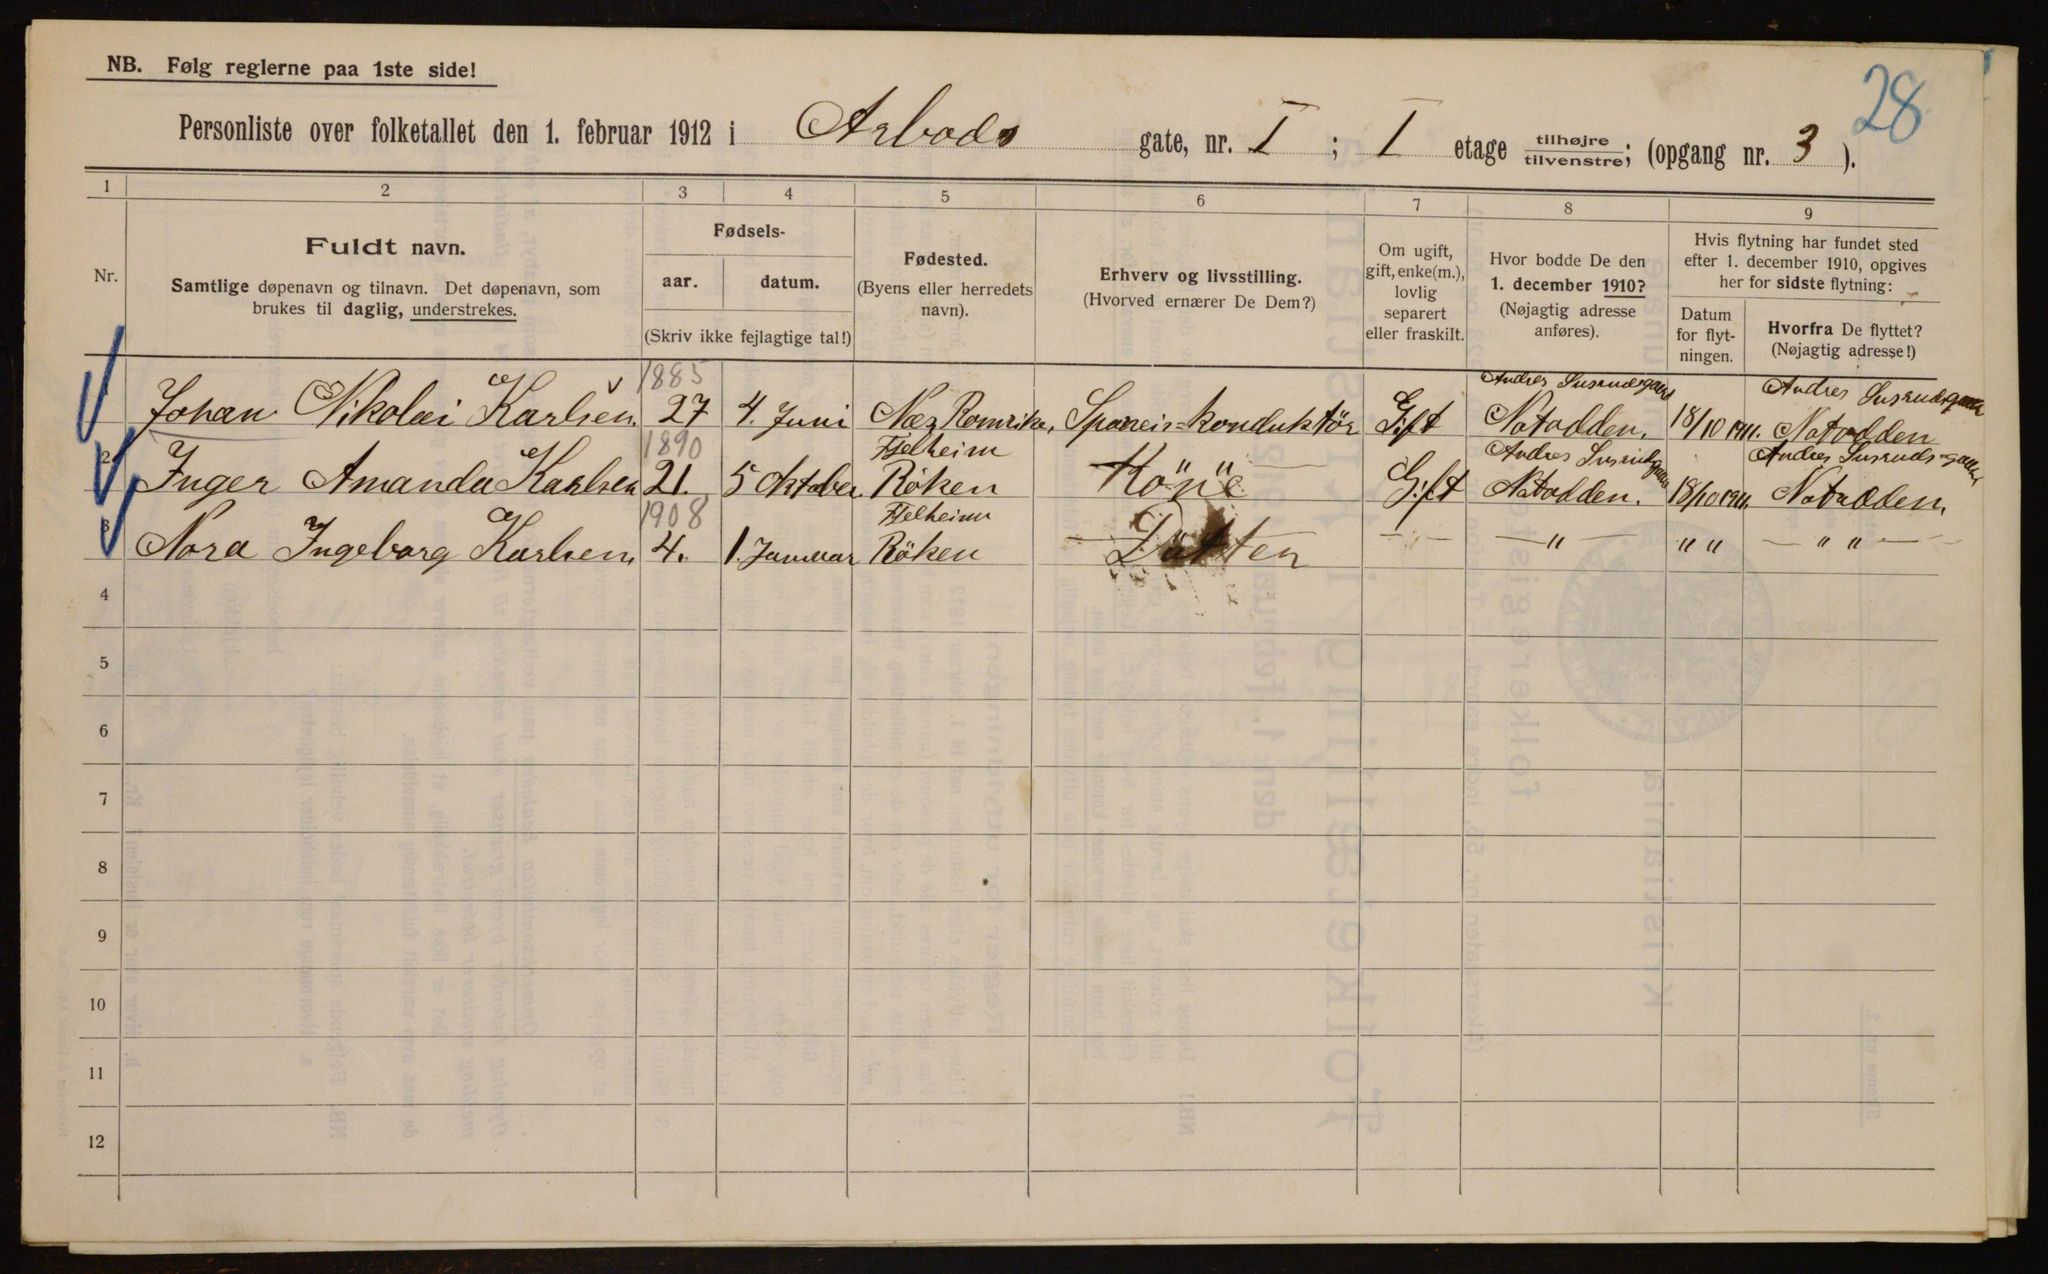 28
NB. Følg reglerne paa 1ste side!
Personliste over folketallet den 1. februar 1912 i Arbods gate, nr. I ; I etage tilhøjre tilvenstre; (opgang nr. 3 ).
1 2 3 4 5 6 7 8 9
Nr.
Fuldt navn.
Samtlige døpenavn og tilnavn. Det døpenavn, som
brukes til daglig, understrekes.
Fødsels-
aar. datum.
(Skriv ikke fejlagtige tal!)
Fødested.
(Byens eller herredets
navn).
Erhverv og livsstilling.
(Hvorved ernærer De Dem?)
Om ugift,
gift, enke(m.),
lovlig
separert
eller fraskilt.
Hvor bodde De den
1. december 1910?
(Nøjagtig adresse
anføres).
Hvis flytning har fundet sted
efter 1. december 1910, opgives
her for sidste flytning:
Datum
for flyt-
ningen.
Hvorfra De flyttet?
(Nøjagtig adresse!)
1885 Andres Susrudsgaard Andres Susrudsgaard
Johan Nikolai Karlsen. 27 4. Juni Næs Romrike, Sporveis=konduktör Gift Notodden. 18/10 1911. Notodden
1890 Fjelheim Andres Susrudsgaard Andres Susruds-gaard
2 Inger Amanda Karlsen 21. 5 Oktober. Röken Köne Gift Notodden. 18/10 1911. Notodden,
1908 Fjelheim
3 Nora Ingeborg Karlsen, 4. 1. Januar Röken — Datter —"— — " — " " — " " —
4
5
6
7
8
9
10
11
12